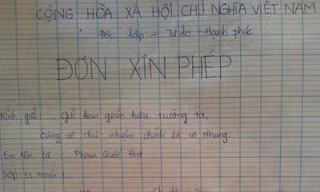 CỘNG HÒA XÃ HỘI CHỦ NGHĨA VIỆT NAM
Độc lập - Tự do - Hạnh phúc
ĐƠN XIN PHÉP
Kính gửi: Gửi ban giám hiệu trường ta,
Cùng cô chủ nhiệm chính là cô Nhung.
Em tên là: Phan Quốc Đạt
Lớp 11